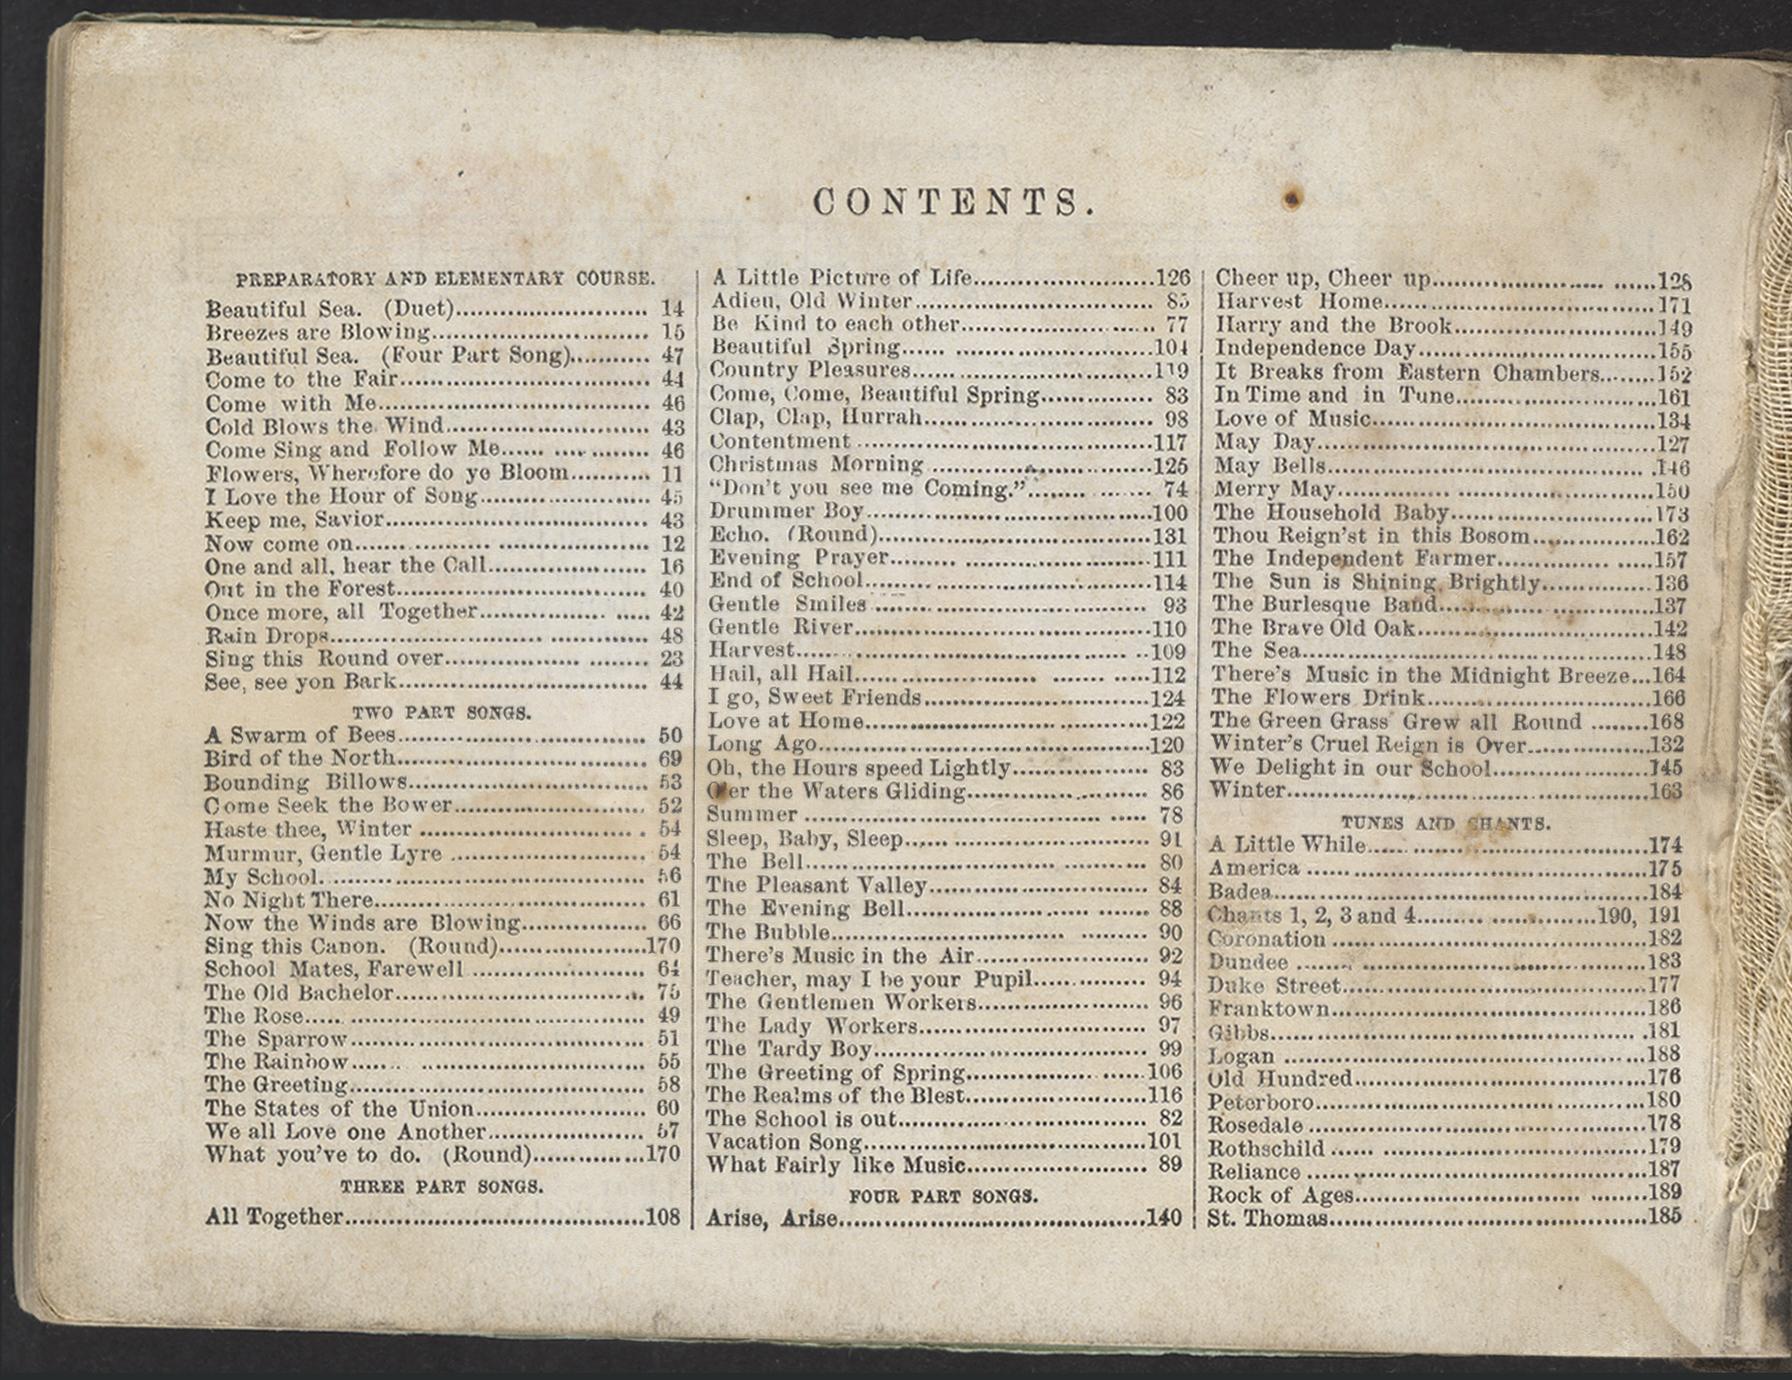 CONTENTS.
PREPARATORY AND ELEMENTARY COURSE.
Beautiful Sea. (Duet)........................ 14
Breezes are Blowing........................ 15
Beautiful Sea. (Four Part Song).......... 47
Come to the Fair........................ 44
Come with Me........................ 46
Cold Blows the Wind........................ 43
Come Sing and Follow Me........................ 46
Flowers, Wherefore do ye Bloom........... 11
I Love the Hour of Song........................ 45
Keep me, Savior........................ 43
Now come on........................ 12
One and all, hear the Call........................ 16
Out in the Forest........................ 40
Once more, all Together........................ 42
Rain Drops........................ 48
Sing this Round over........................ 23
See, see yon Bark........................ 44
TWO PART SONGS.
A Swarm of Bees........................ 50
Bird of the North........................ 69
Bounding Billows........................ 53
Come Seek the Bower........................ 52
Haste thee, Winter ........................ 54
Murmur, Gentle Lyre ........................ 54
My School........................ 56
No Night There........................ 61
Now the Winds are Blowing................ 66
Sing this Canon. (Round)..................170
School Mates, Farewell ........................ 64
The Old Bachelor........................ 75
The Rose........................ 49
The Sparrow........................ 51
The Rainbow........................ 55
The Greeting........................ 58
The States of the Union........................ 60
We all Love one Another........................ 57
What you've to do. (Round)..............170
THREE PART SONGS.
All Together........................108
A Little Picture of Life........................126
Adieu, Old Winter........................ 85
Be Kind to each other........................ 77
Beautiful Spring........................104
Country Pleasures........................119
Come, Come, Beautiful Spring.............. 83
Clap, Clap, Hurrah........................ 98
Contentment ........................117
Christmas Morning ........................125
"Don't you see me Coming."................ 74
Drummer Boy........................100
Echo. (Round)........................131
Evening Prayer........................111
End of School........................114
Gentle Smiles ........................ 93
Gentle River........................110
Harvest........................109
Hail, all Hail........................112
I go, Sweet Friends........................124
Love at Home........................122
Long Ago........................120
Oh, the Hours speed Lightly................ 83
O'er the Waters Gliding........................ 86
Summer ........................ 78
Sleep, Baby, Sleep........................ 91
The Bell........................ 80
The Pleasant Valley........................ 84
The Evening Bell........................ 88
The Bubble........................ 90
There's Music in the Air........................ 92
Teacher, may I be your Pupil.............. 94
The Gentlemen Workers........................ 96
The Lady Workers........................ 97
The Tardy Boy........................ 99
The Greeting of Spring........................106
The Realms of the Blest........................116
The School is out........................ 82
Vacation Song........................101
What Fairly like Music........................ 89
FOUR PART SONGS.
Arise, Arise........................140
Cheer up, Cheer up........................128
Harvest Home........................171
Harry and the Brook........................149
Independence Day........................155
It Breaks from Eastern Chambers........152
In Time and in Tune........................161
Love of Music........................134
May Day........................127
May Bells........................146
Merry May........................150
The Household Baby........................173
Thou Reign'st in this Bosom................162
The Independent Farmer........................157
The Sun is Shining Brightly..............136
The Burlesque Band........................137
The Brave Old Oak........................142
The Sea........................148
There's Music in the Midnight Breeze...164
The Flowers Drink........................166
The Green Grass Grew all Round ........168
Winter's Cruel Reign is Over................132
We Delight in our School........................145
Winter........................163
TUNES AND CHANTS.
A Little While........................174
America ........................175
Badea........................184
Chants 1, 2, 3 and 4........................190, 191
Coronation ........................182
Dundee ........................183
Duke Street........................177
Franktown........................186
Gibbs........................181
Logan ........................188
Old Hundred........................176
Peterboro........................180
Rosedale ........................178
Rothschild ........................179
Reliance ........................187
Rock of Ages........................189
St. Thomas........................185